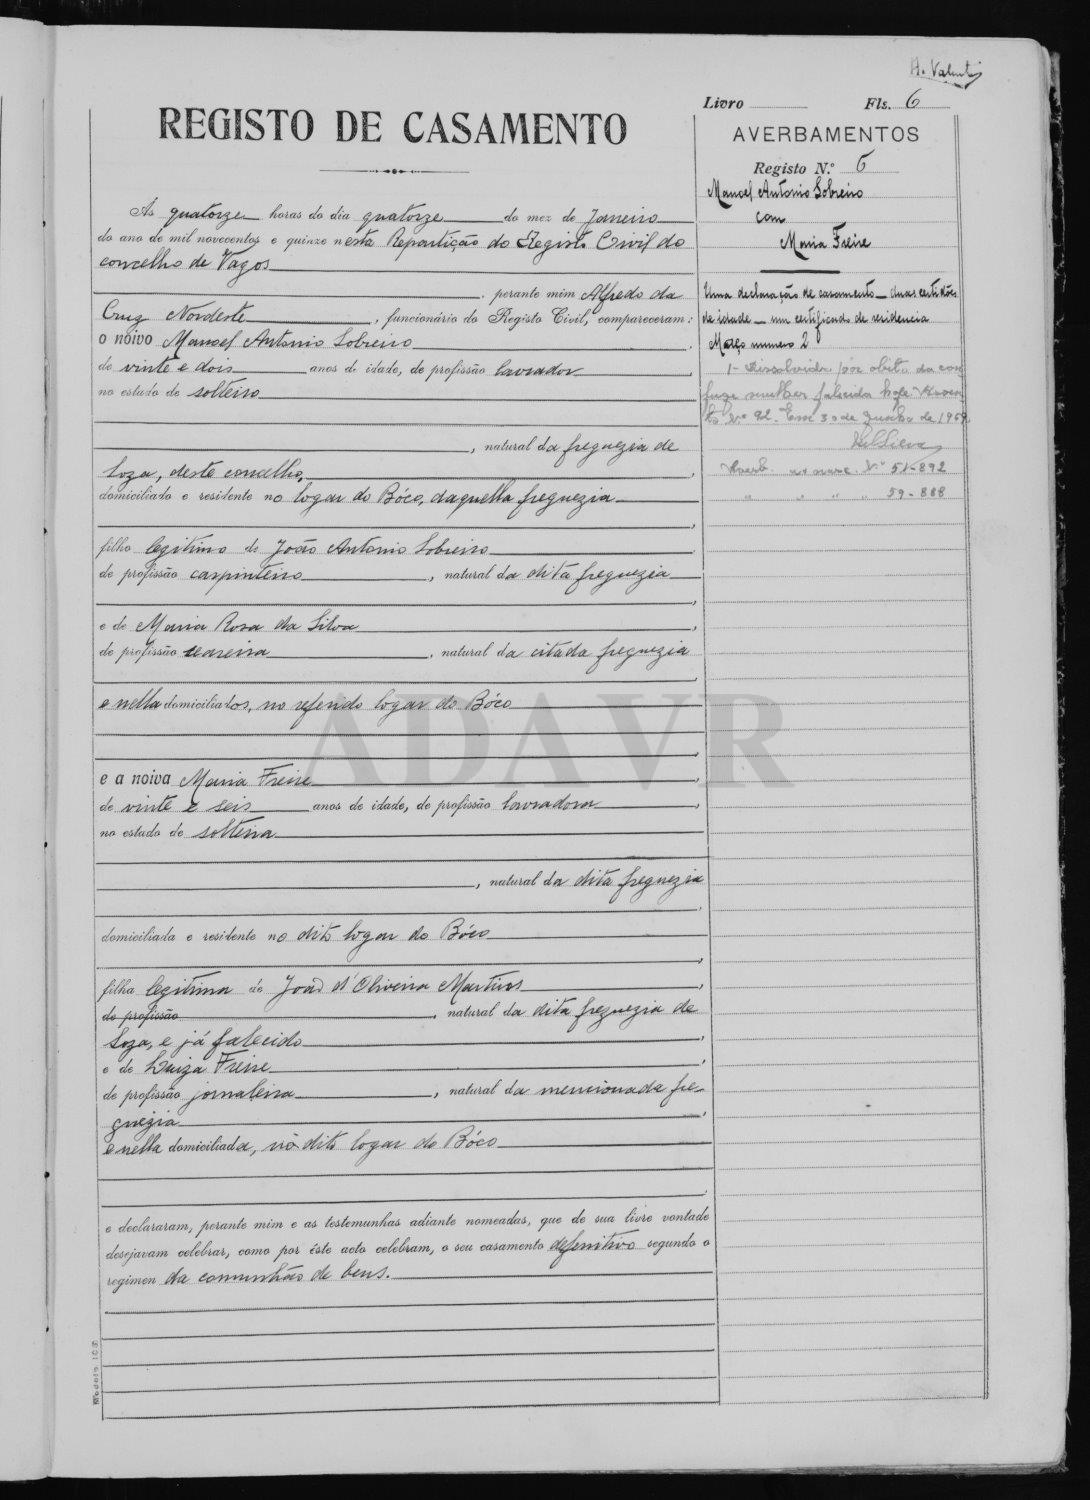 A. Valente
Livro Fls. 6
REGISTO DE CASAMENTO
AVERBAMENTOS
Registo N.º 6
Manoel Antonio Sobreiro
com
Maria Freire
Uma declaração de casamento — duas certidões
de idade — um certificado de residencia
Março numero 2
1- Dissolvido por obito da con
juge mulher falecida hoje.
Nº 92. Em 30 de Junho de 1959
Nº 58-892
" " " " 59-888
As quatorze horas do dia quatorze do mez de Janeiro
do ano de mil novecentos e quinze nesta Repartição do Registo Civil do
concelho de Vagos
, perante mim Alfredo da
Cruz Nordeste, funcionário do Registo Civil, compareceram:
o noivo Manoel Antonio Sobreiro,
de vinte e dois anos de idade, de profissão lavrador
no estado de solteiro
, natural da freguezia de
Soza, deste concelho,
domiciliado e residente no logar do Bóco, daquella freguezia
,
filho legitimo de João Antonio Sobreiro
de profissão carpinteiro, natural da dita freguezia
,
e de Maria Rosa da Silva
de profissão tecedeira, natural da citada freguezia
,
e nella domiciliados, no referido logar do Bóco
e a noiva Maria Freire,
de vinte e seis anos de idade, de profissão lavradora,
no estado de solteira
, natural da dita freguezia
,
domiciliada e residente no dito logar do Bóco
,
filha legitima de João d'Oliveira Martins,
de profissão, natural da dita freguezia de
Soza, e já falecido,
e de Luiza Freire,
de profissão jornaleira, natural da mencionada fre-
guezia,
e nella domiciliada, no dito logar do Bóco
e declararam, perante mim e as testemunhas adiante nomeadas, que de sua livre vontade
desejavam celebrar, como por êste acto celebram, o seu casamento definitivo segundo o
regimen da comunhão de bens.
ADAVR
Modelo 103